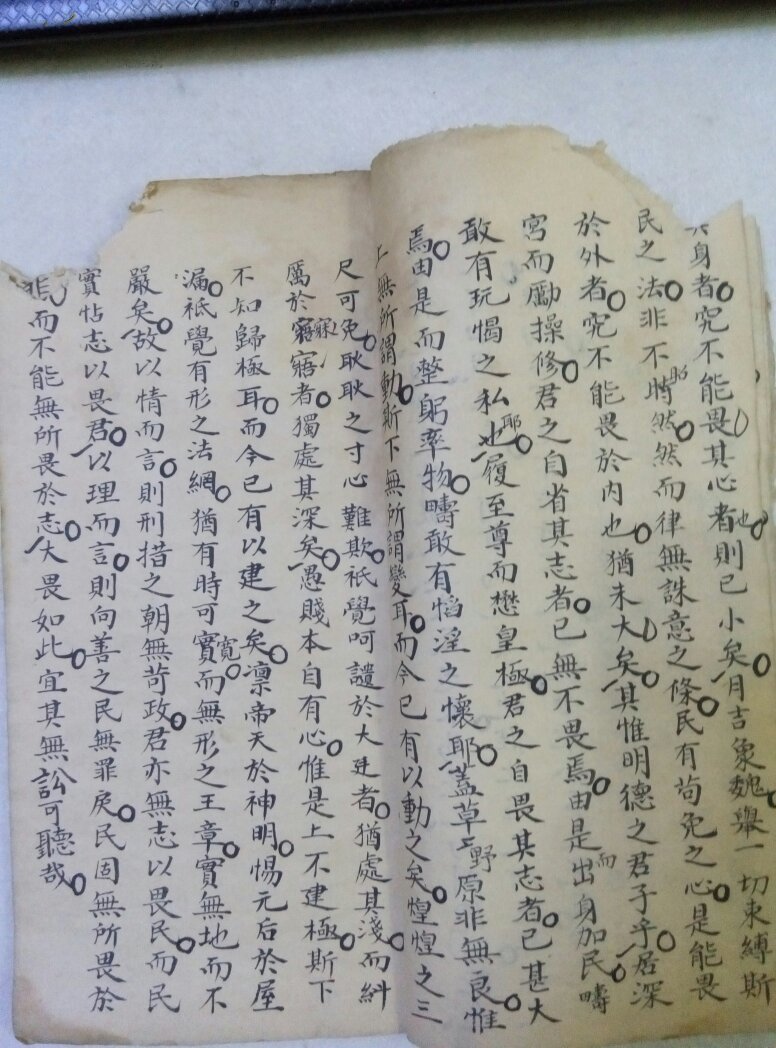 身者究不能畏其心者也則已小矣月吉象魏舉一切束縛斯
民之法非不昭然然而律無誅意之條民有苟免之心是能畏
於外者究不能畏於內也猶未大矣其惟明德之君子乎居深
宮而勵操修君之自省其志者已無不畏焉由是而出身加民疇
敢有玩愒之私也耶履至尊而懋皇極君之自畏其志者已甚大
焉由是而整躬率物疇敢有慆淫之懷耶蓋草野原非無良惟
上無所謂動斯下無所謂變耳而今已有以動之矣惶惶之三
尺可免耿耿之寸心難欺祇覺呵譴於大廷者猶處其淺而糾
厲於寤寐者獨處其深矣愚賤本自有心惟是上不建極斯下
不知歸極耳而今已有以建之矣凛帝天於神明惕元后於屋
漏祇覺有形之法網猶有時可寬而無形之王章實無地而不
嚴矣故以情而言則刑措之朝無苛政君亦無志以畏民而民
實怗志以畏君以理而言則向善之民無罪戾民固無所畏於
而不能無所畏於志大畏如此宜其無訟可聽哉